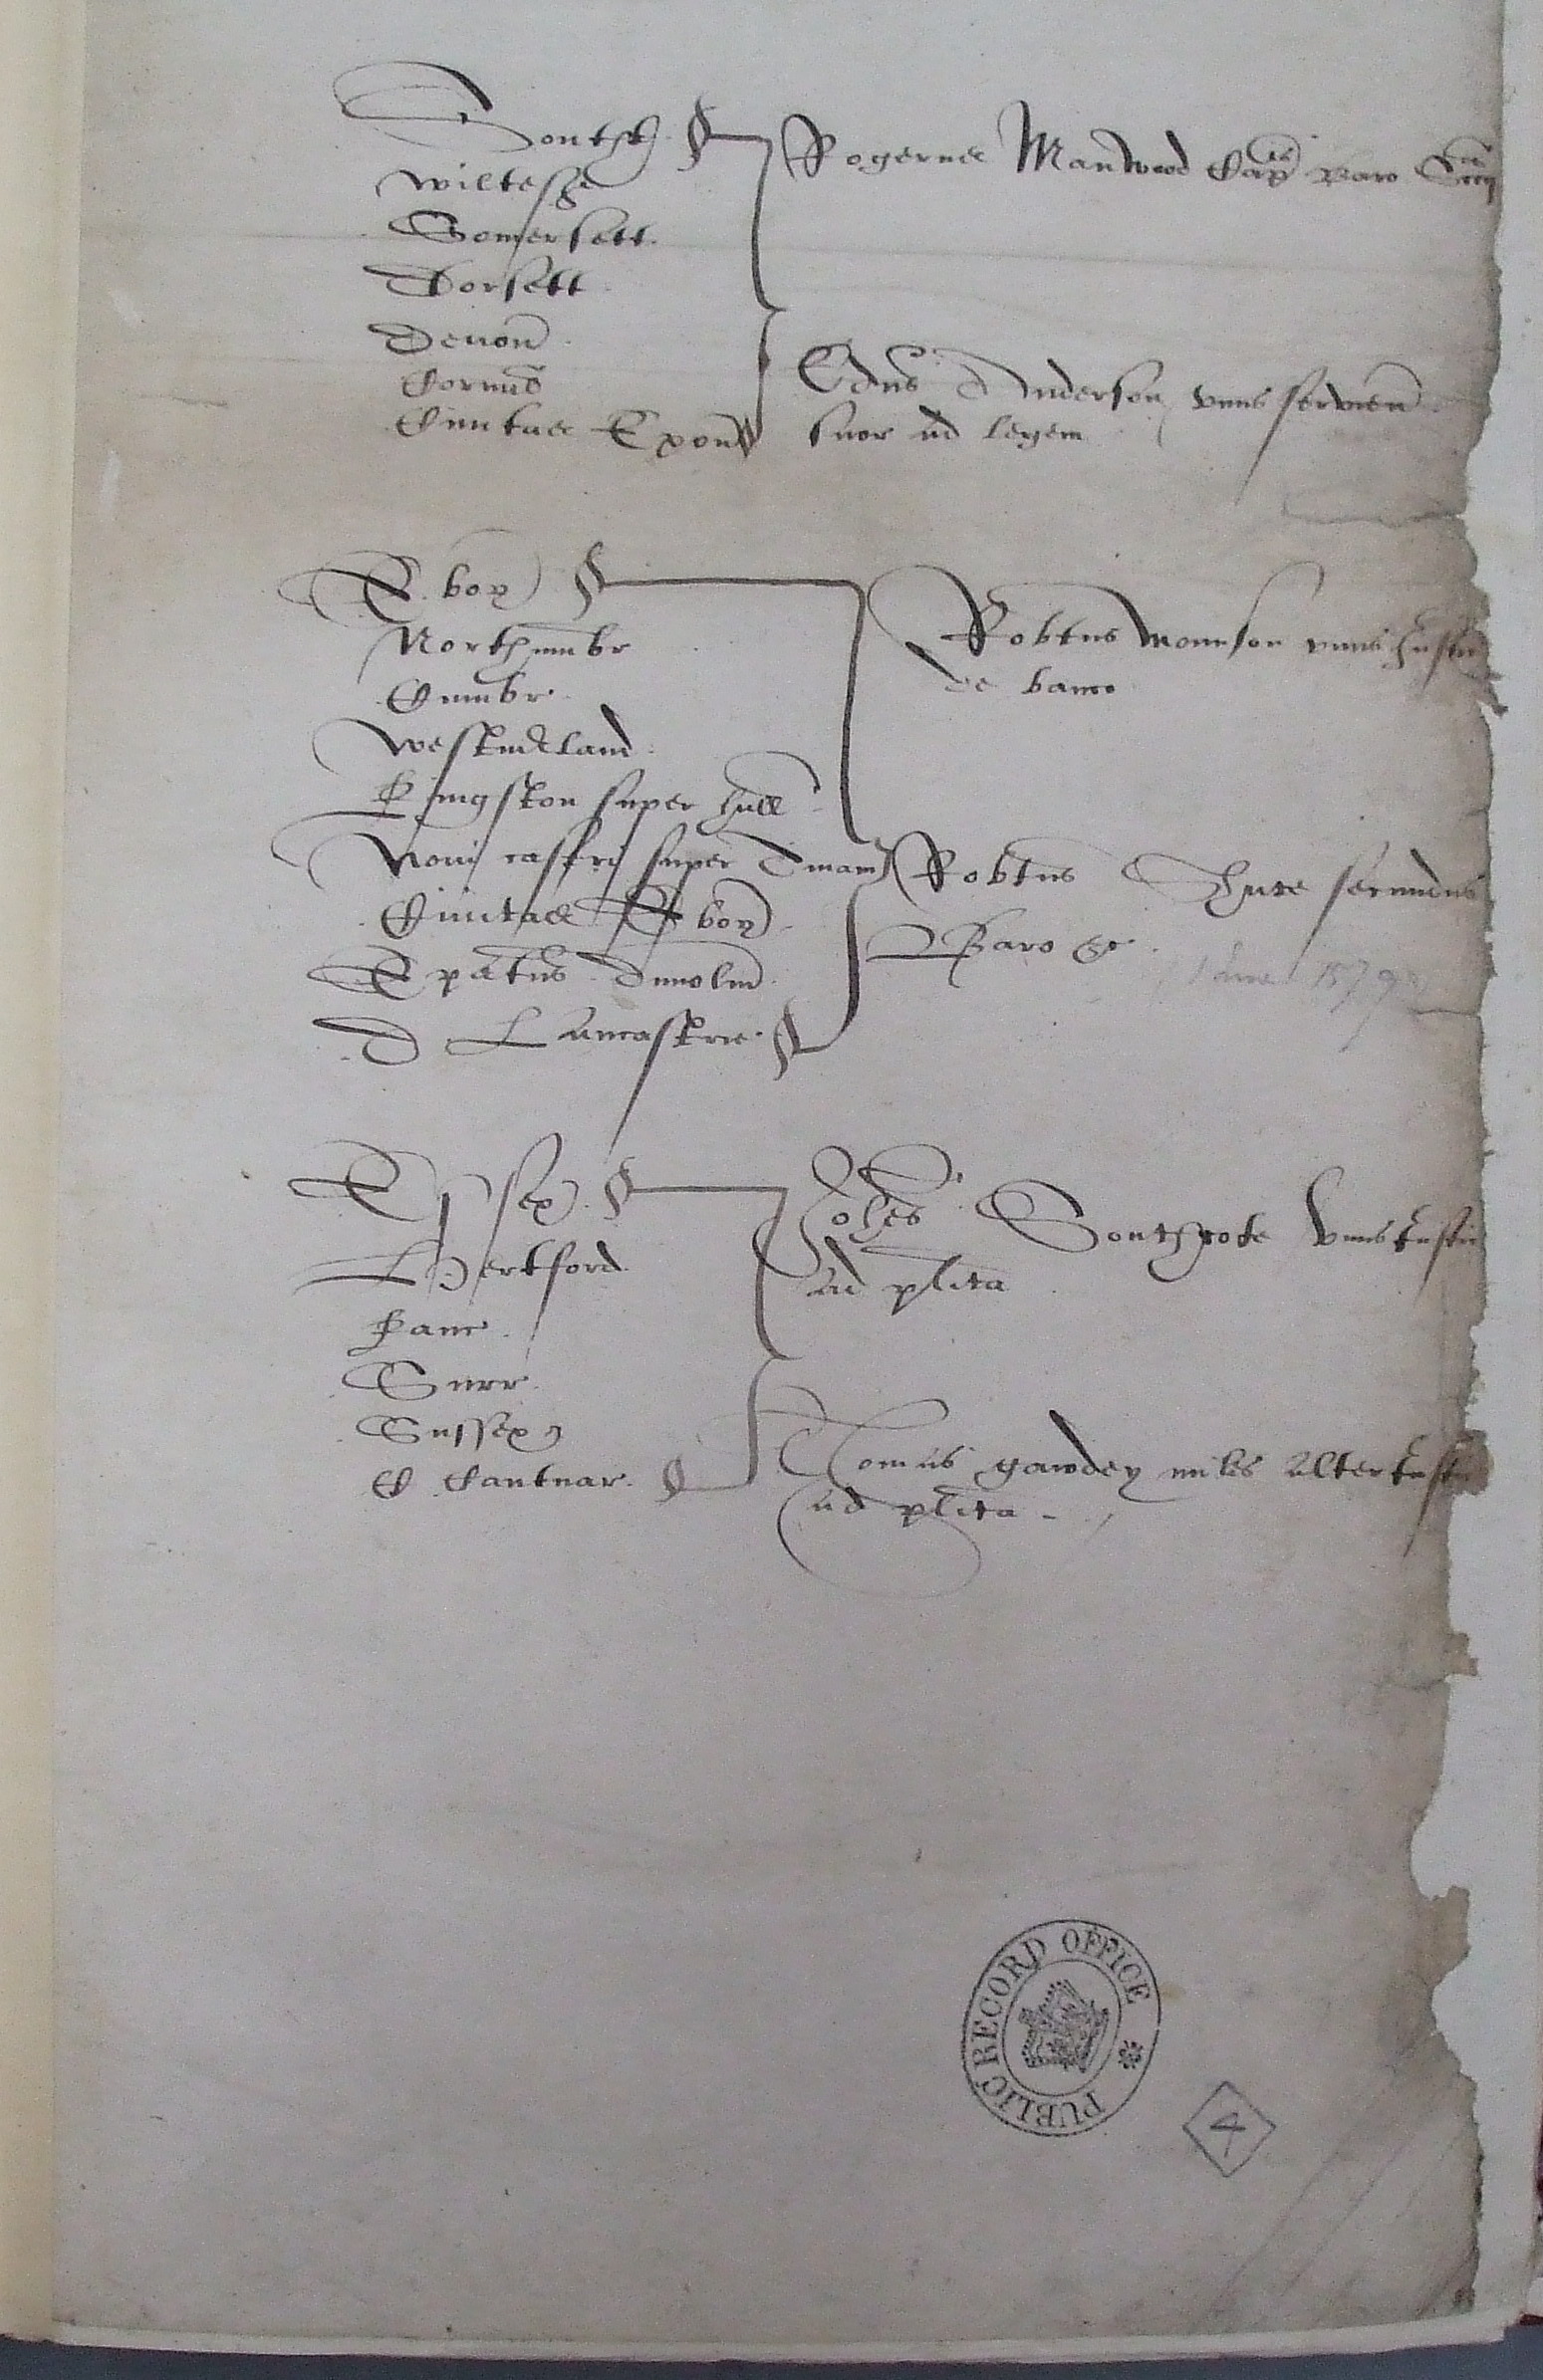 Southt
Rogerus Manwood Cap Baro Sccij
Wiltesh
Somersett
Dorsett
Devon
Edus Anderson unus servien
Cornub
Civitas Exon suor ad legem
Ebor
Robtus Mounson unus Justic
Northumbr
de banco
Cumbr
Westmerland
Kingston super Hull
Novi castri super Tinam
Robtus Shute secundus
Civitas Ebor
Baro &c
Epatus Dunolm
June 1579
Lancastrie
Essex
Johes Southcote unus Justic
Hertford
ad plita
Kanc
Surr
Sussex
Thomas Gawdey miles alter Justic
C Cantuar
ad plita
PUBLIC RECORD OFFICE
4